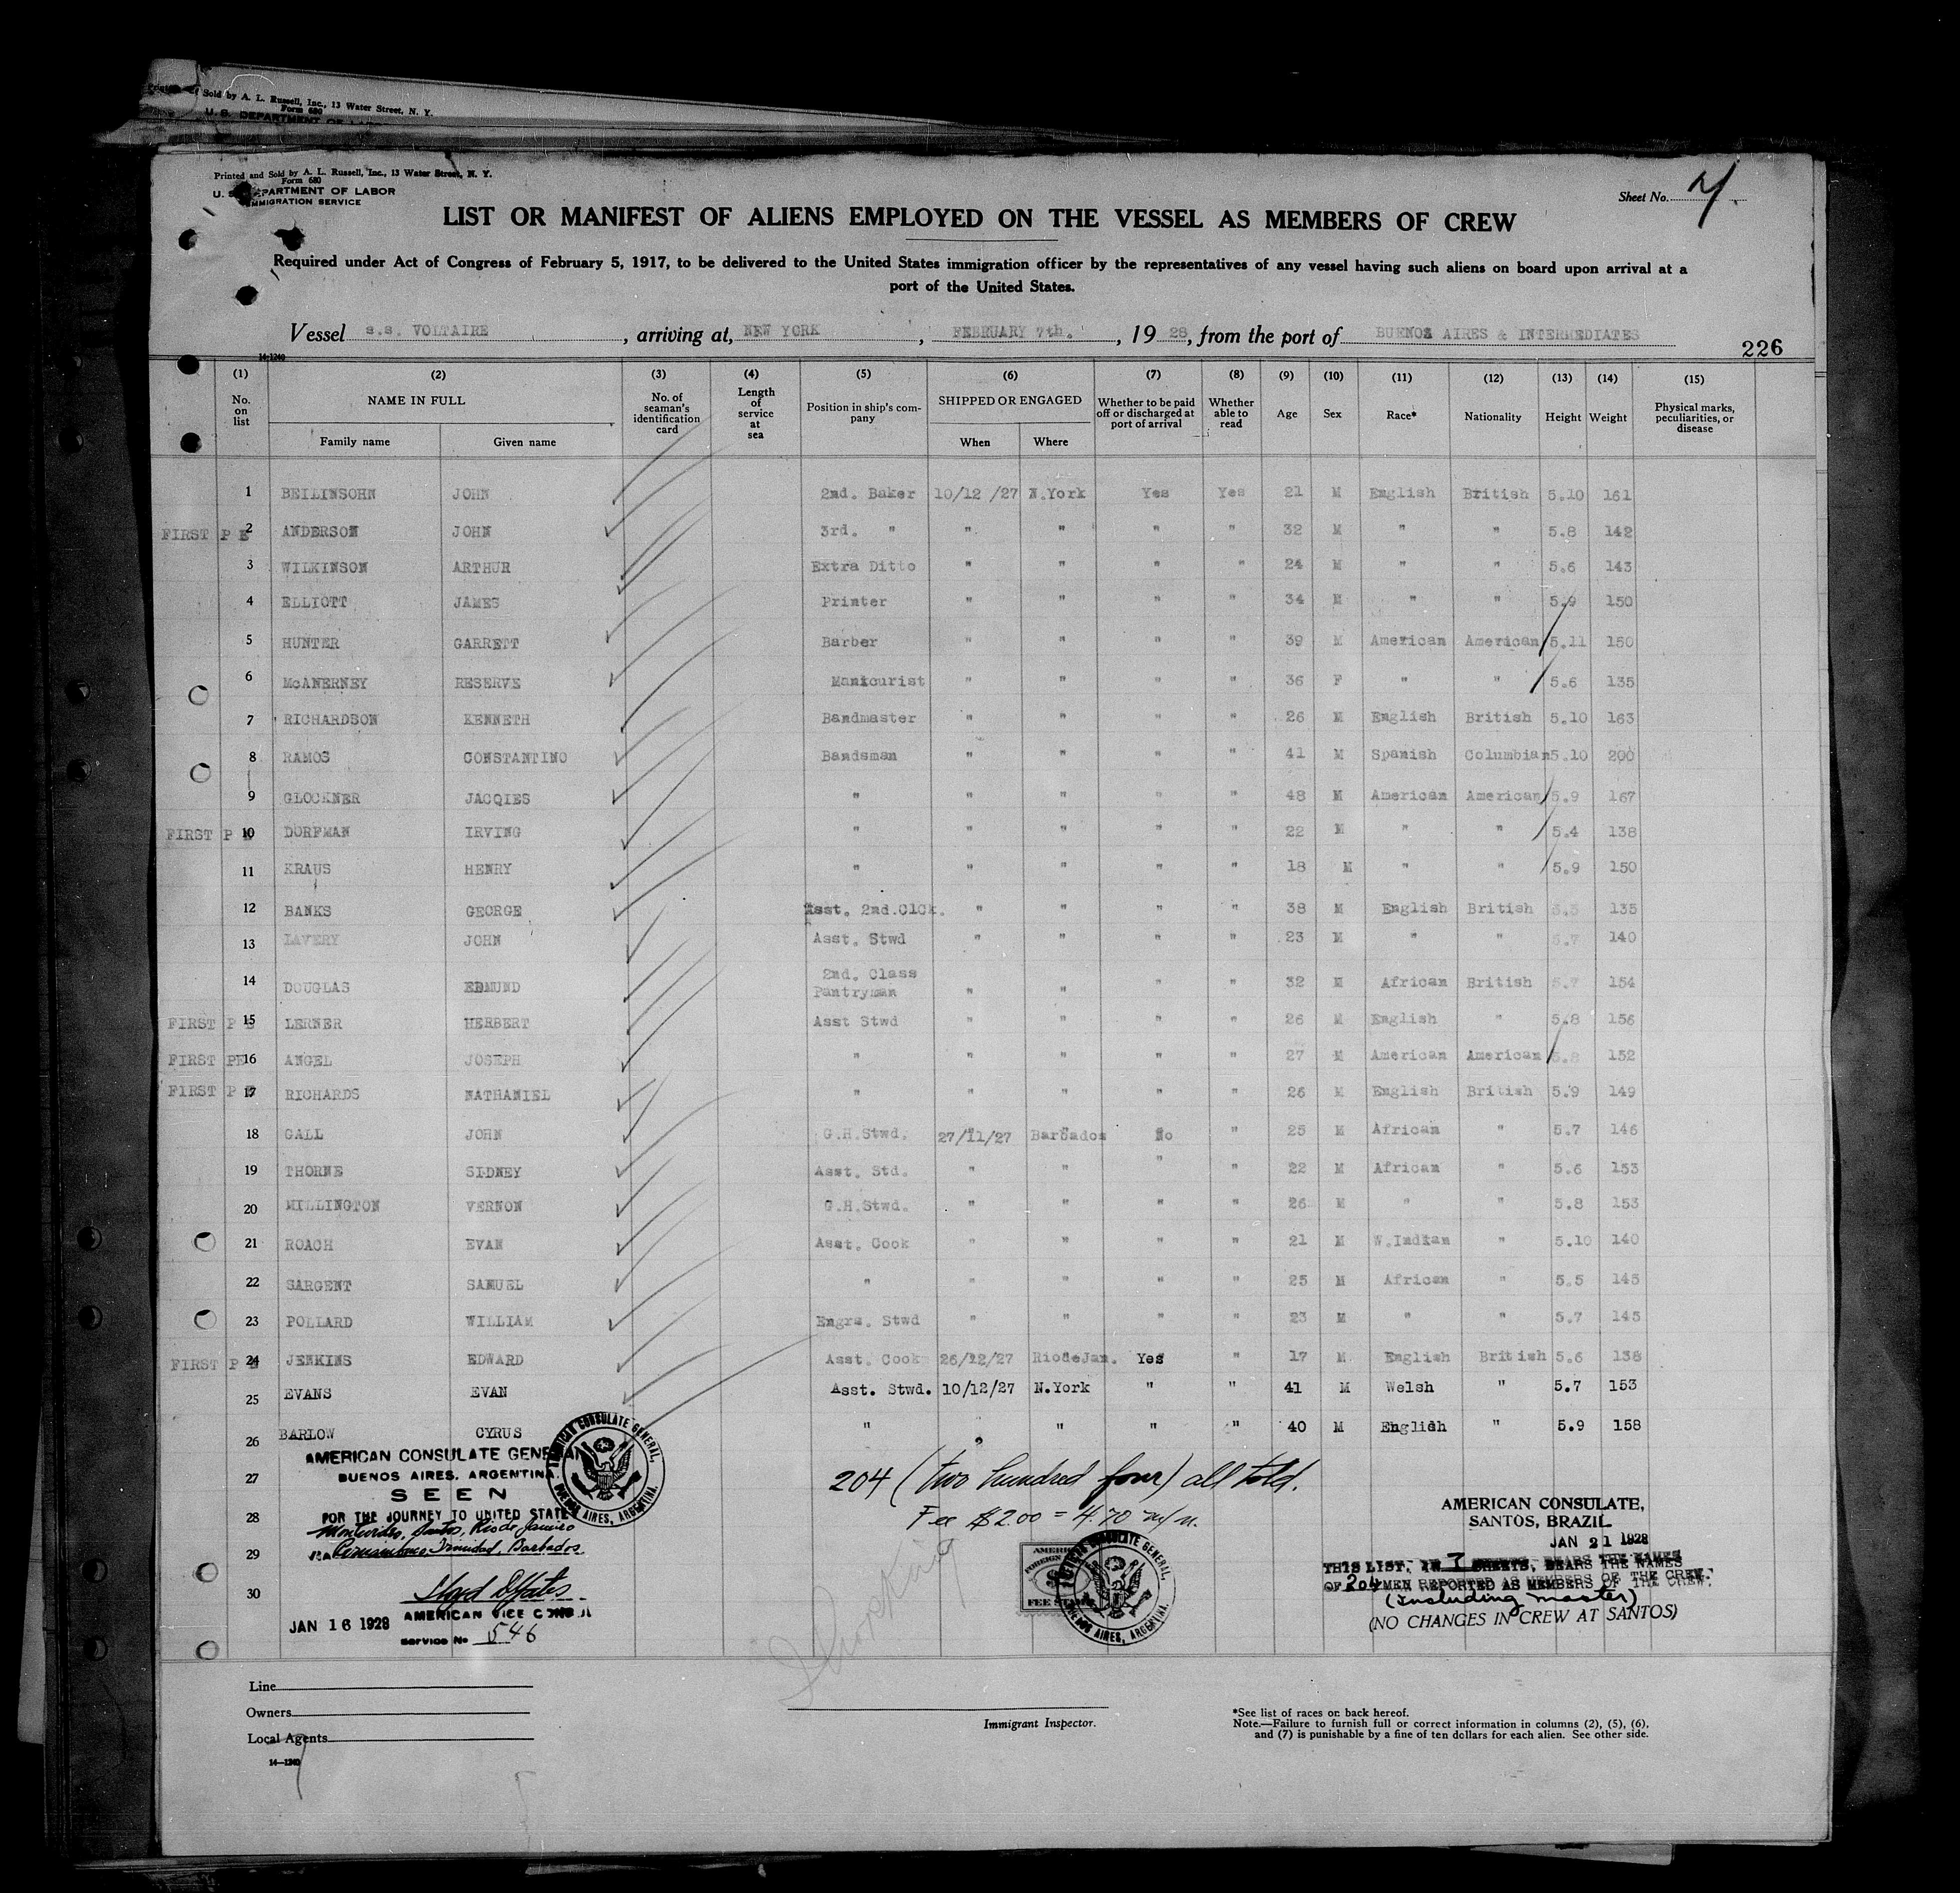 Sold by A. L. Russell, Inc., 13 Water Street, N. Y.
Form 680
U. S. DEPARTMENT OF LA
Printed and Sold by A. L. Russell, Inc., 13 Water Street, N. Y.
Form 680
U. S. DEPARTMENT OF LABOR
IMMIGRATION SERVICE
Sheet No.
LIST OR MANIFEST OF ALIENS EMPLOYED ON THE VESSEL AS MEMBERS OF CREW
Required under Act of Congress of February 5, 1917, to be delivered to the United States immigration officer by the representatives of any vessel having such aliens on board upon arrival at a
port of the United States.
Vessel s.s. VOLTAIRE, arriving at, NEW YORK, FEBRUARY 7th., 19 28, from the port of BUENOS AIRES & INTERMEDIATES
226
14-1240
(1) (2) (3) (4) (5) (6) (7) (8) (9) (10) (11) (12) (13) (14) (15)
No. on list NAME IN FULL Family name Given name No. of seaman's identification card Length of service at sea Position in ship's company SHIPPED OR ENGAGED When Where Whether to be paid off or discharged at port of arrival Whether able to read Age Sex Race* Nationality Height Weight Physical marks, peculiarities, or disease
1 BEILINSOHN JOHN 2nd. Baker 10/12 /27 N.York Yes Yes 21 M English British 5.10 161
FIRST P E 2 ANDERSON JOHN 3rd. " " " " " 32 M " " 5.8 142
3 WILKINSON ARTHUR Extra Ditto " " " " 24 M " " 5.6 143
4 ELLIOTT JAMES Printer " " " " 34 M " " 5.9 150
5 HUNTER GARRETT Barber " " " " 39 M American American 5.11 150
6 McANERNEY RESERVE Manicurist " " " " 36 F " " 5.6 135
7 RICHARDSON KENNETH Bandmaster " " " " 26 M English British 5.10 163
8 RAMOS CONSTANTINO Bandsman " " " " 41 M Spanish Columbian 5.10 200
9 GLOCKNER JACQIES " " " " " 48 M American American 5.9 167
FIRST P E 10 DORFMAN IRVING " " " " " 22 M " " 5.4 138
11 KRAUS HENRY " " " " " 18 M " " 5.9 150
12 BANKS GEORGE Asst. 2nd.Clck. " " " " 38 M English British 135
13 LAVERY JOHN Asst. Stwd " " " " 23 M " " 5.7 140
14 DOUGLAS EDMUND 2nd. Class Pantryman " " " " 32 M African British 5.7 154
FIRST P E 15 LERNER HERBERT Asst Stwd " " " " 26 M English " 5.8 156
FIRST PE 16 ANGEL JOSEPH " " " " " 27 M American American 5.8 152
FIRST P E 17 RICHARDS NATHANIEL " " " " " 26 M English British 5.9 149
18 GALL JOHN G.H.Stwd. 27/11/27 Barbados No " 25 M African " 5.7 146
19 THORNE SIDNEY Asst. Std. " " " " 22 M African " 5.6 153
20 MILLINGTON VERNON G.H.Stwd. " " " " 26 M " " 5.8 153
21 ROACH EVAN Asst. Cook " " " " 21 M W.Indian " 5.10 140
22 SARGENT SAMUEL " " " " " 25 M African " 5.5 145
23 POLLARD WILLIAM Engrs. Stwd " " " " 23 M " " 5.7 145
FIRST P E 24 JENKINS EDWARD Asst. Cook 26/12/27 RiodeJan. Yes " 17 M English British 5.6 138
25 EVANS EVAN Asst. Stwd. 10/12/27 N.York " " 41 M Welsh " 5.7 153
26 BARLOW CYRUS " " " " " 40 M English " 5.9 158
AMERICAN CONSULATE GENERAL
BUENOS AIRES, ARGENTINA.
SEEN
FOR THE JOURNEY TO UNITED STATES
Montevideo, Santos, Rio de Janeiro
via Pernambuco, Trinidad, Barbados.
AMERICAN VICE CONSUL
JAN 16 1928
Service No 546
AMERICAN CONSULATE GENERAL, BUENOS AIRES, ARGENTINA.
27
28
29
30
204 (two hundred four) all told.
Fee $2.00 = 4.70 m/n.
AMERICAN FOREIGN FEE STAMP
AMERICAN CONSULATE GENERAL, BUENOS AIRES, ARGENTINA.
AMERICAN CONSULATE,
SANTOS, BRAZIL
JAN 21 1928
THIS LIST, IN 7 SHEETS, BEARS THE NAMES
OF 204 MEN REPORTED AS MEMBERS OF THE CREW.
(including master)
(NO CHANGES IN CREW AT SANTOS)
Line
Owners
Local Agents
14-1240
Immigrant Inspector.
*See list of races on back hereof.
Note.—Failure to furnish full or correct information in columns (2), (5), (6),
and (7) is punishable by a fine of ten dollars for each alien. See other side.